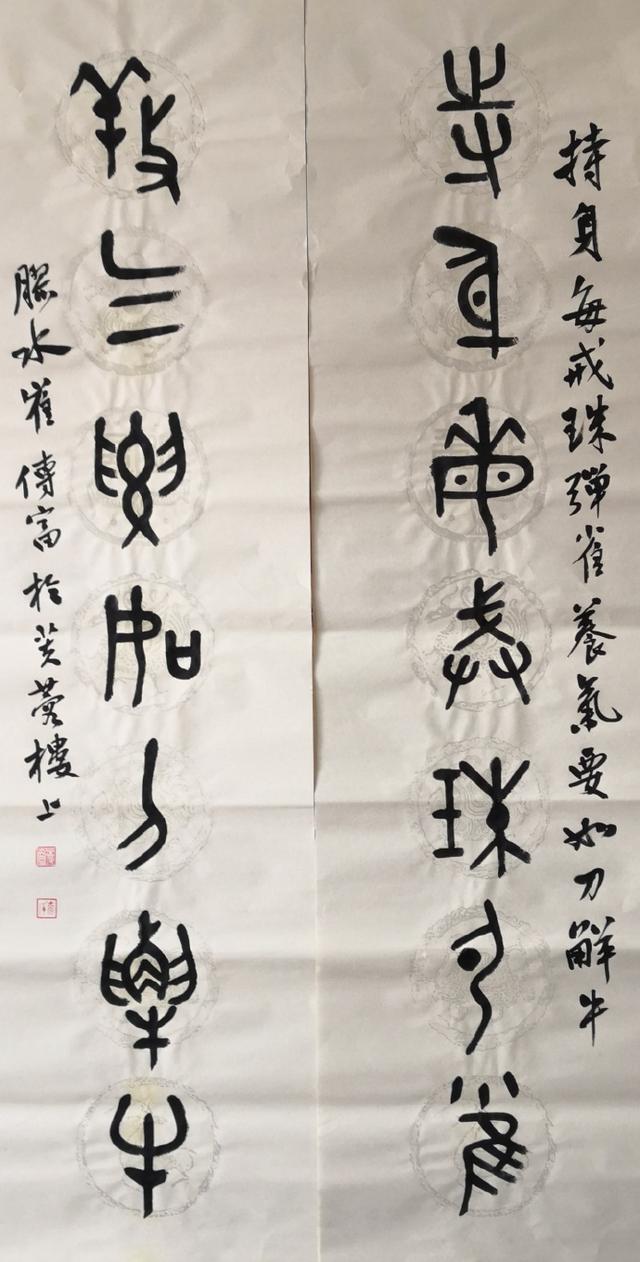 持身每戒珠彈雀養氣要如刀觧牛
持身每戒珠彈雀
養氣要如刀解牛
膠水崔傳富於芙蓉樓上